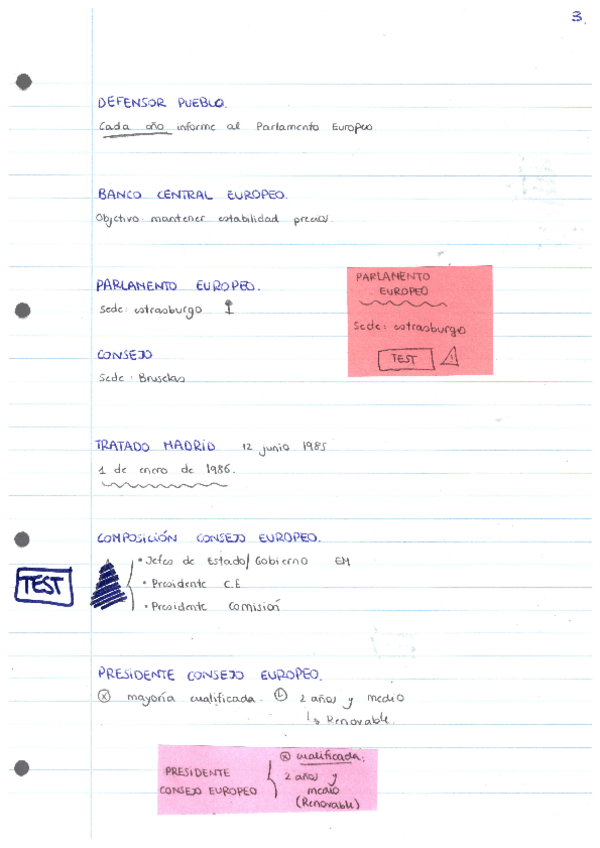 3.
DEFENSOR PUEBLO.
Cada año informe al Parlamento Europeo
BANCO CENTRAL EUROPEO.
Objetivo: mantener estabilidad precios.
PARLAMENTO EUROPEO.
Sede: estrasburgo
PARLAMENTO
EUROPEO
Sede: estrasburgo
TEST
CONSEJO
Sede: Bruselas
TRATADO MADRID 12 junio 1985
1 de enero de 1986.
COMPOSICIÓN CONSEJO EUROPEO.
TEST
• Jefes de Estado/Gobierno EM
• Presidente C.E
• Presidente Comisión
PRESIDENTE CONSEJO EUROPEO.
(x) mayoría cualificada. (L) 2 años y medio
↳ Renovable.
PRESIDENTE
CONSEJO EUROPEO
(x) cualificada.
2 años y
medio
(Renovable)